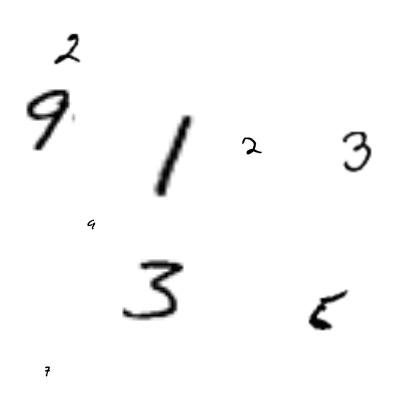 2
9
1 2 3
9
3 5
7